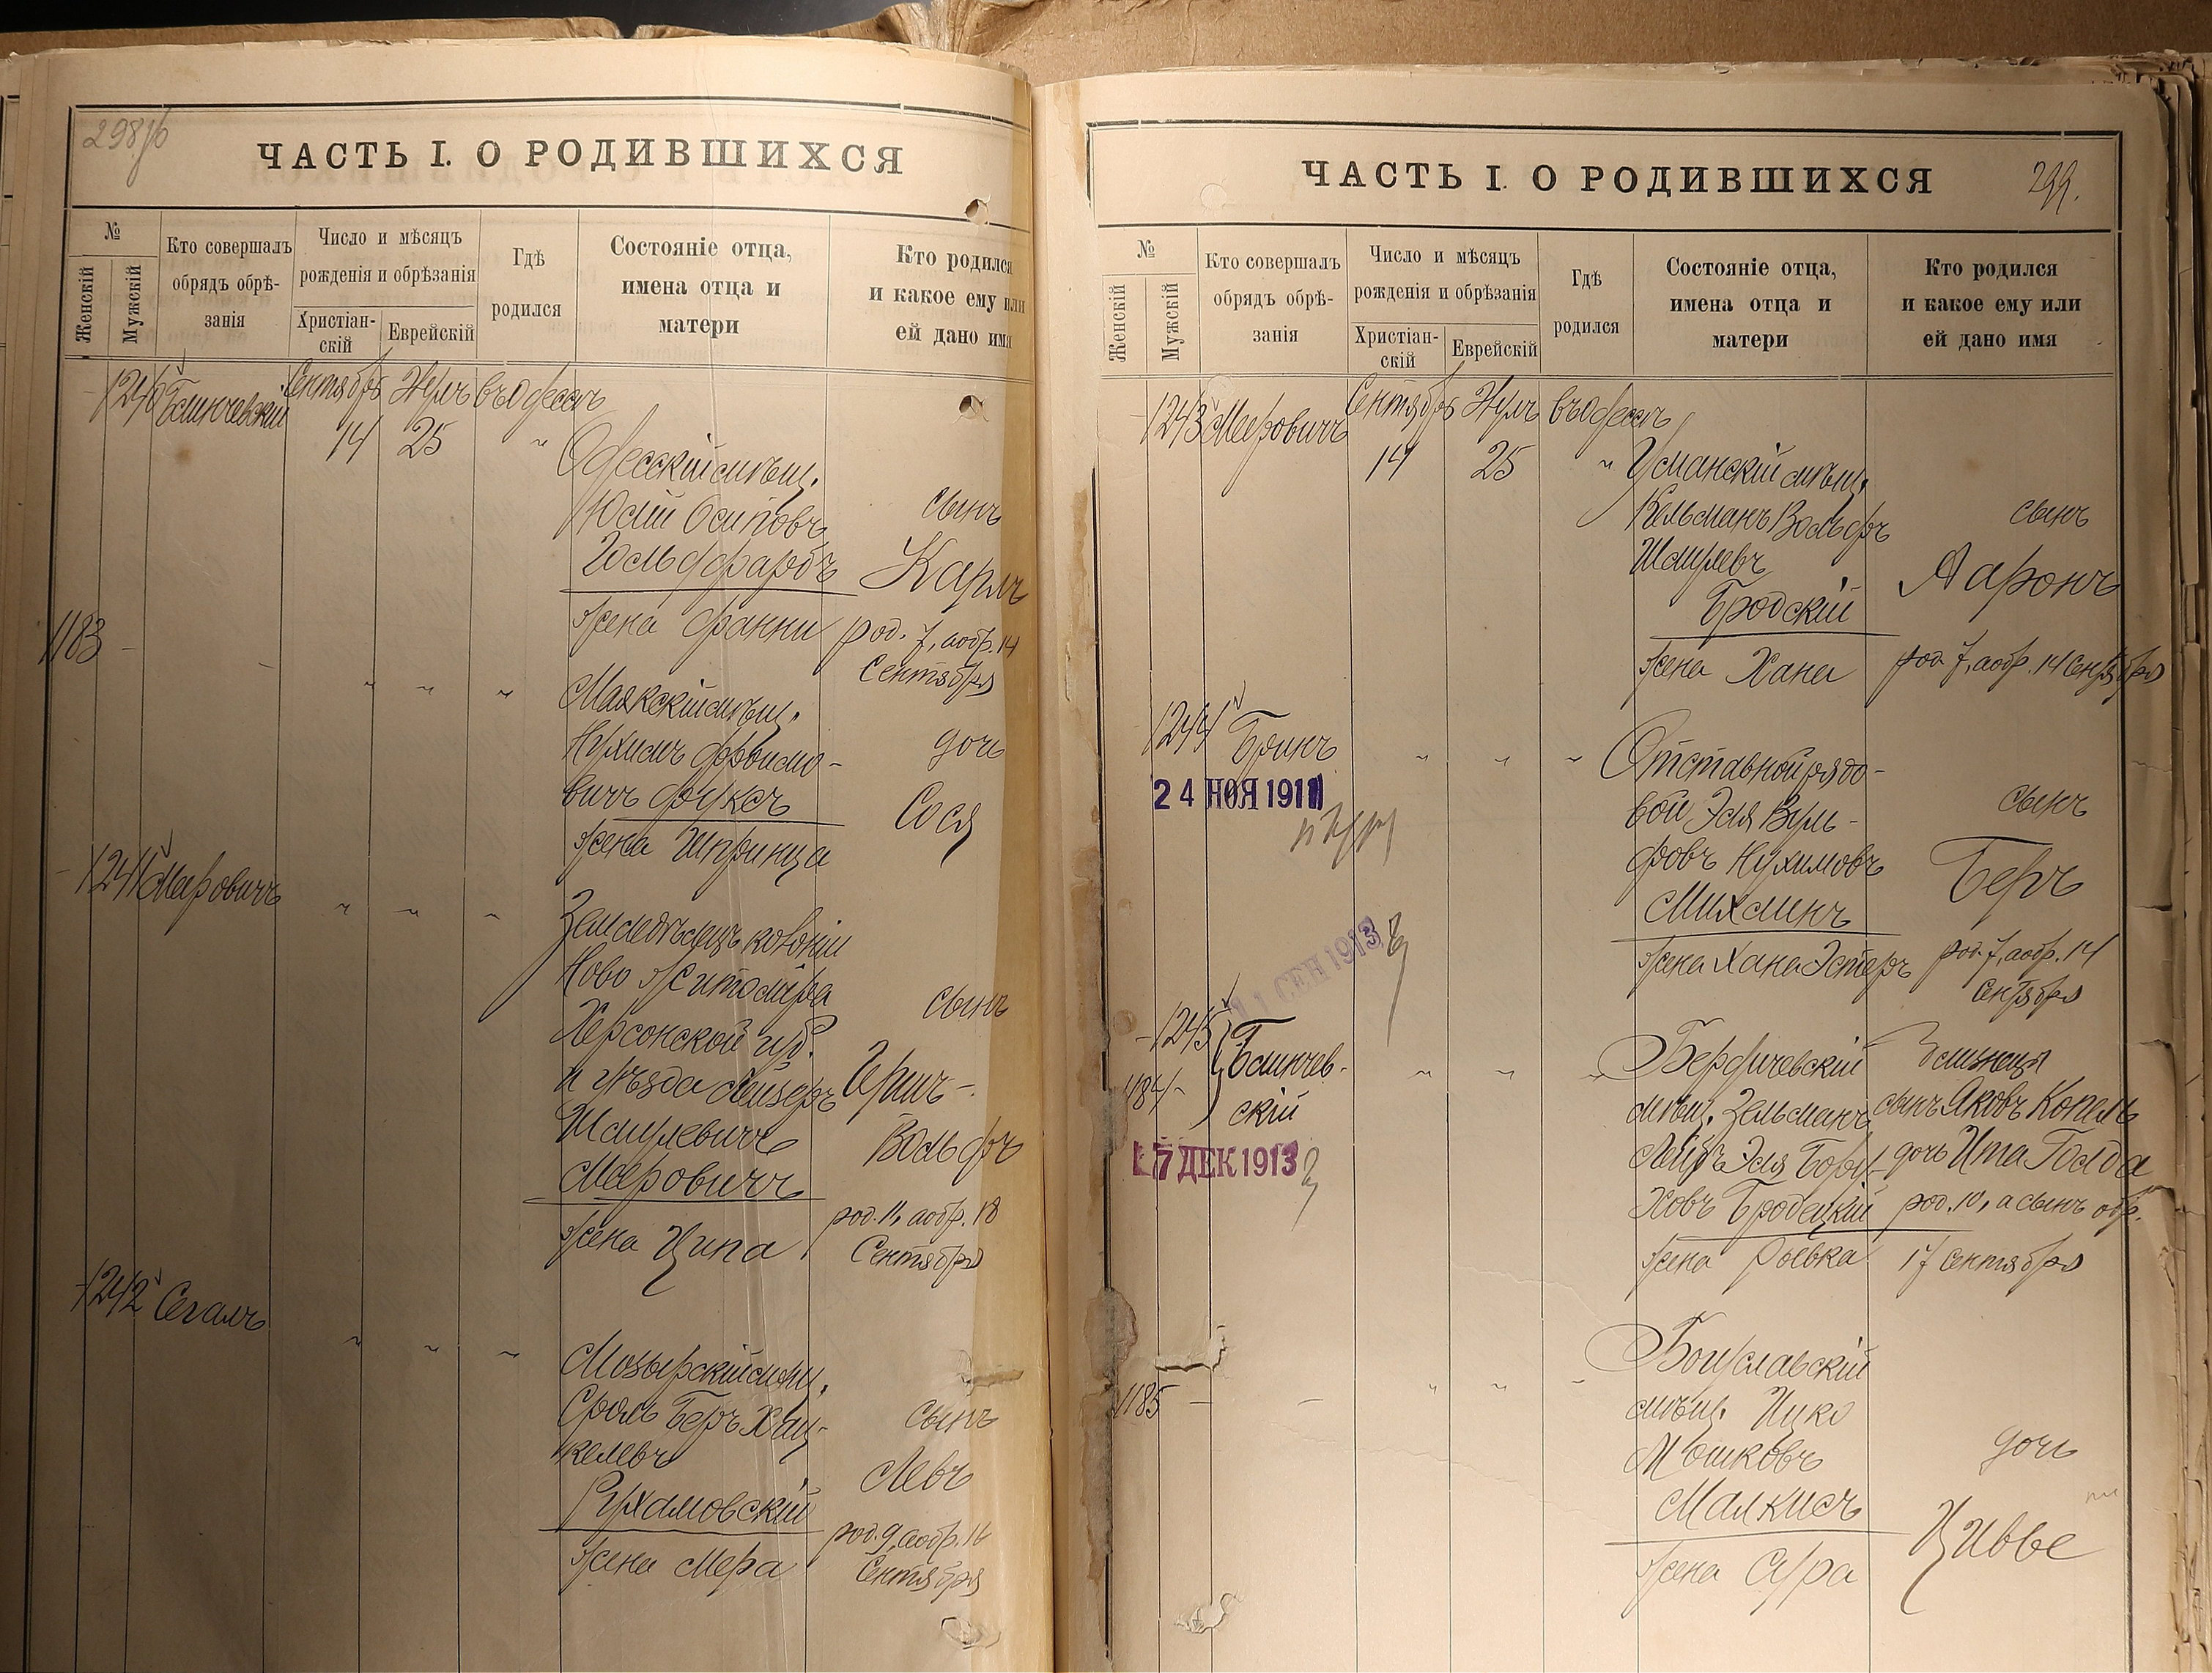 298об
ЧАСТЬ I. О РОДИВШИХСЯ
№
Женскій
Мужскій
Кто совершалъ
обрядъ обрѣ-
занія
Число и мѣсяцъ
рожденія и обрѣзанія
Христіан-
скій
Еврейскій
Гдѣ
родился
Состояніе отца,
имена отца и
матери
Кто родился
и какое ему или
ей дано имя
1240 Сентябрь въ Одессѣ
14 25 "
Одесскій мѣщ.
Осиповъ
Гольдфарбъ
жена Фанни
сынъ
Карлъ
род. 7, а обр. 14
Сентября
1183 - - " " "
Маякскій мѣщ.
Нухимъ
вичъ Фуксъ
жена Шпринца
дочь
Сося
1241 Меровичъ " " "
Земледѣлецъ колоніи
Ново Житоміра
Херсонской губ.
и уѣзда Лейзеръ
Шмулевичъ
Меровичъ
жена Ципа
сынъ
Гершъ-
Вольфъ
род. 11, а обр. 18
Сентября
1242 Сегалъ " " "
Мозырскій мѣщ.
Сроль Беръ Хац-
келевъ
Рухомовскій
жена Мера
сынъ
Левъ
род. 9, а обр. 16
Сентября
299.
ЧАСТЬ I. О РОДИВШИХСЯ
№
Женскій
Мужскій
Кто совершалъ
обрядъ обрѣ-
занія
Число и мѣсяцъ
рожденія и обрѣзанія
Христіан-
скій
Еврейскій
Гдѣ
родился
Состояніе отца,
имена отца и
матери
Кто родился
и какое ему или
ей дано имя
1243 Меровичъ Сентябрь въ Одессѣ
14 25 "
Уманскій мѣщ.
Кельманъ Вольфъ
Шмулевъ
Бродскій
жена Хана
сынъ
Ааронъ
род. 7, а обр. 14 Сентября
1244 Бринъ " " "
24 НОЯ 1911
Отставной рядо-
вой Эля Вуль-
фовъ Нухимовъ
Михлинъ
жена Хана Эстеръ
сынъ
Беръ
род. 7, а обр. 14
Сентября
11 СЕН 1913
1245
1184 -
Блинчев-
скій
" " "
17 ДЕК 1913
Бердичевскій
мѣщ. Зельманъ
Лейбъ Эля Бору-
ховъ Бродецкій
жена Ривка
близнецы
сынъ Яковъ Копель
дочь Ита Голда
род. 10, а сынъ обр.
17 Сентября
1185 - - " " "
Богуславскій
мѣщ. Ицко
Мошковъ
Малкисъ
жена Сура
дочь
Цивве